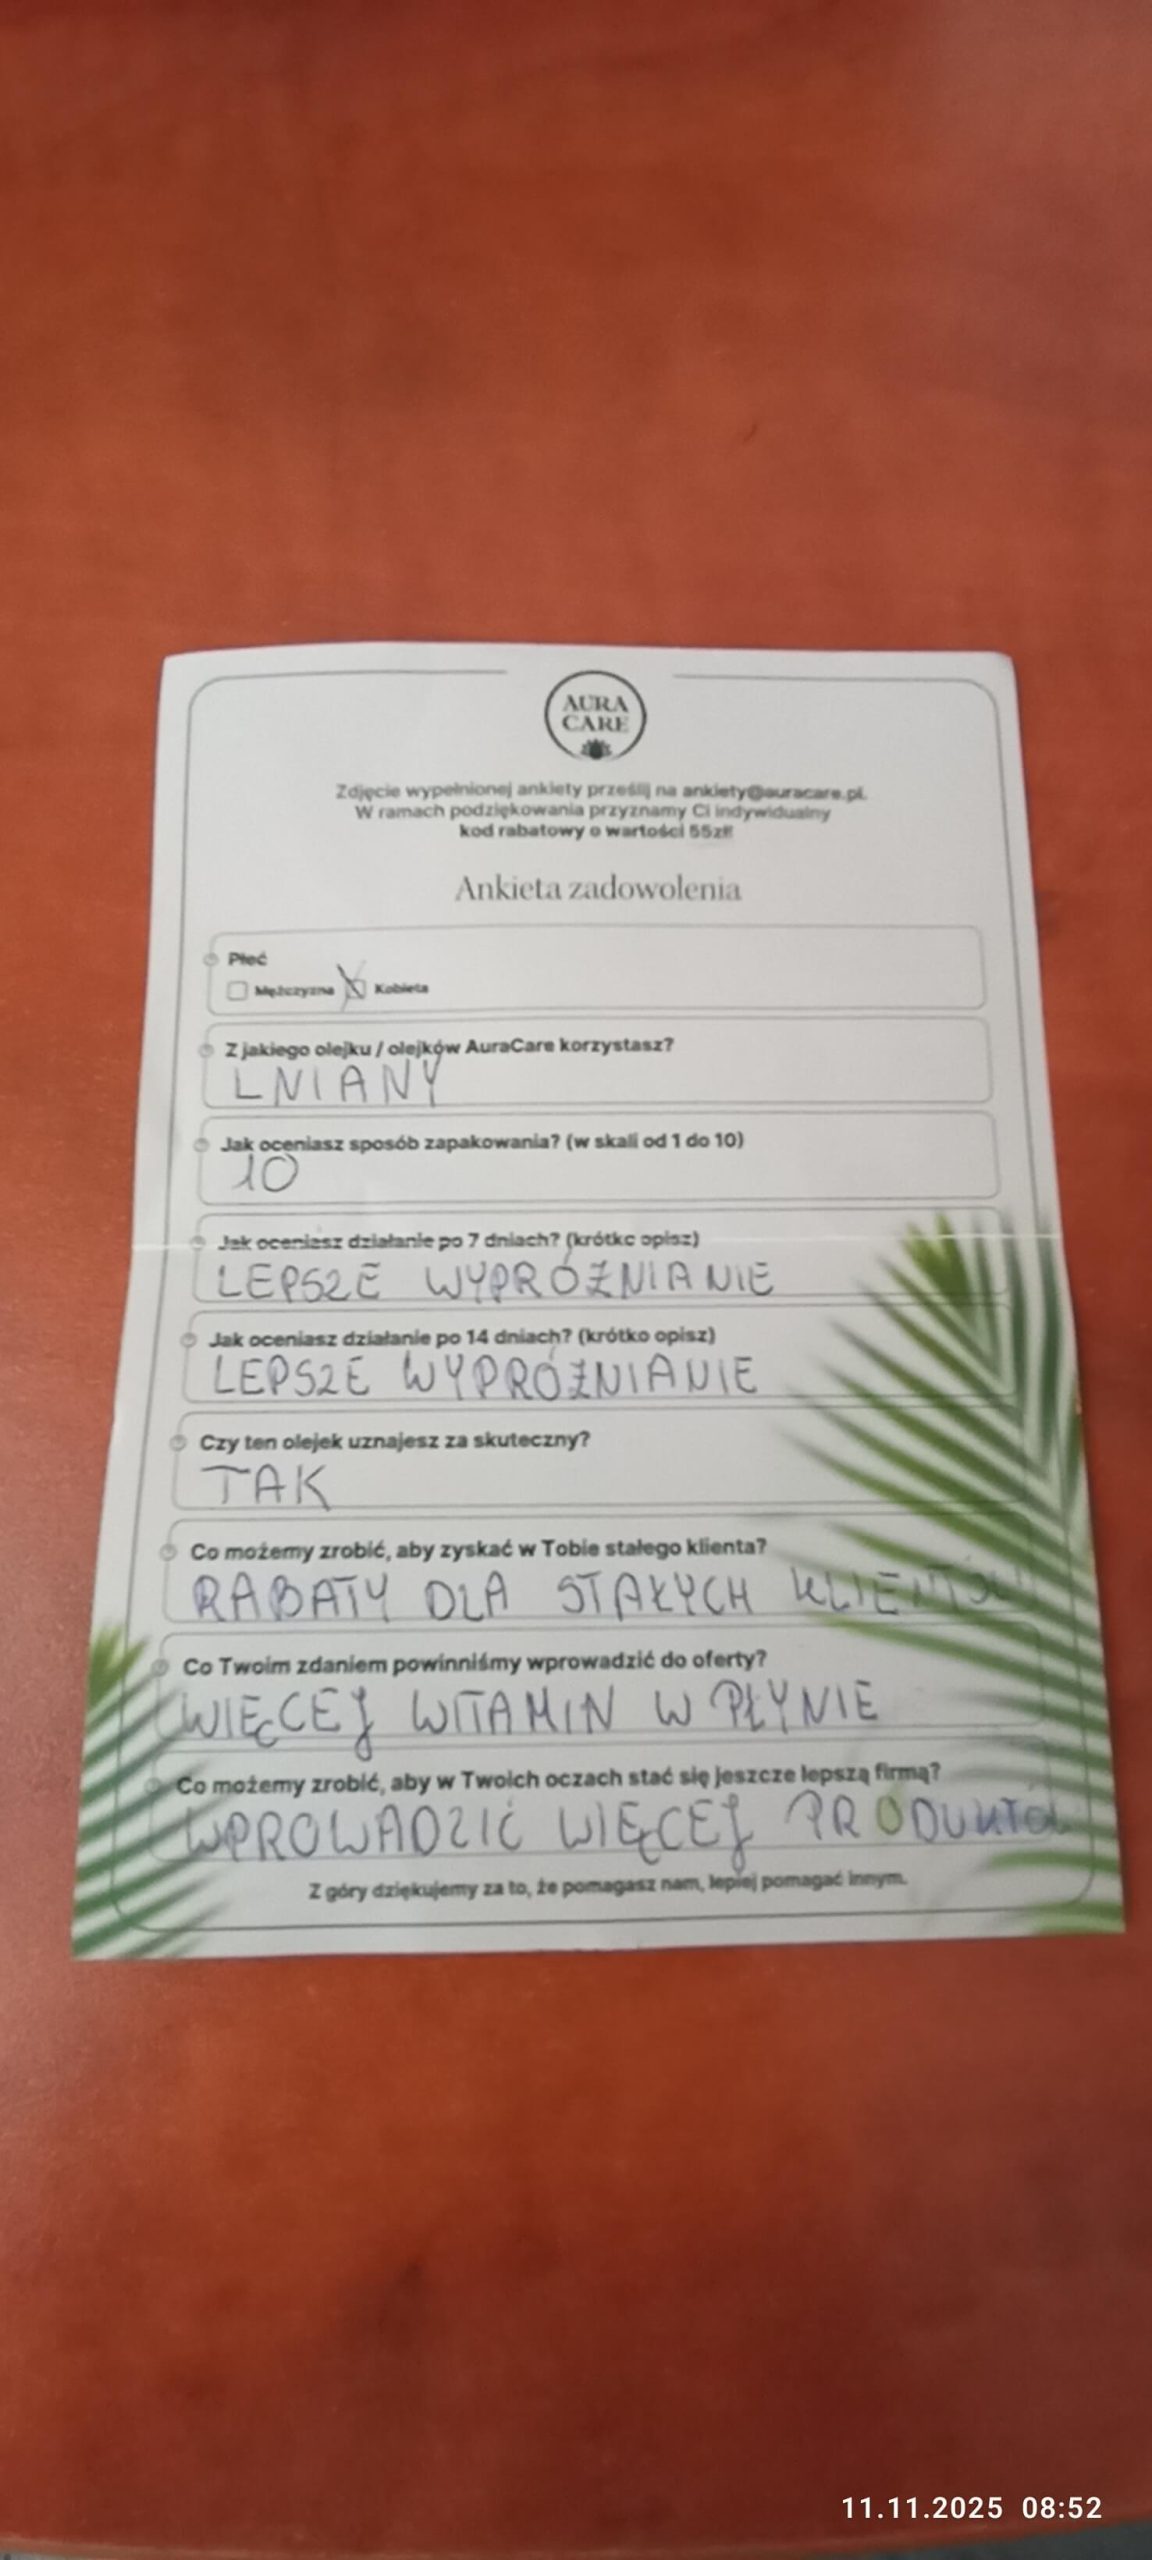 AURA
CARE
Zdjęcie wypełnionej ankiety prześlij na ankiety@auracare.pl.
W ramach podziękowania przyznamy Ci indywidualny
kod rabatowy o wartości 55zł!
Ankieta zadowolenia
Płeć
Mężczyzna Kobieta
Z jakiego olejku / olejków AuraCare korzystasz?
LNIANY
Jak oceniasz sposób zapakowania? (w skali od 1 do 10)
10
Jak oceniasz działanie po 7 dniach? (krótko opisz)
LEPSZE WYPRÓŻNIANIE
Jak oceniasz działanie po 14 dniach? (krótko opisz)
LEPSZE WYPRÓŻNIANIE
Czy ten olejek uznajesz za skuteczny?
TAK
Co możemy zrobić, aby zyskać w Tobie stałego klienta?
RABATY DLA STAŁYCH KLIENTÓW
Co Twoim zdaniem powinniśmy wprowadzić do oferty?
WIĘCEJ WITAMIN W PŁYNIE
Co możemy zrobić, aby w Twoich oczach stać się jeszcze lepszą firmą?
WPROWADZIĆ WIĘCEJ PRODUKTÓW
Z góry dziękujemy za to, że pomagasz nam, lepiej pomagać innym.
11.11.2025 08:52